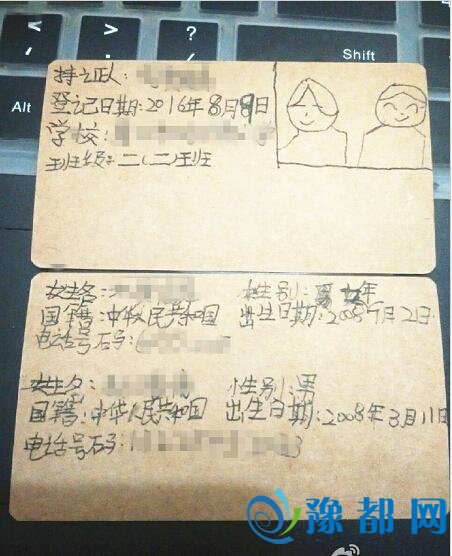 Alt
Shift
持证人:
登记日期:2016年8月9日
学校:
班级:二(二)班
姓名:
性别:
国籍:中华人民共和国
出生日期:2008年7月2日
电话号码:
姓名:
性别:男
国籍:中华人民共和国
出生日期:2008年3月11日
电话号码:
豫都网